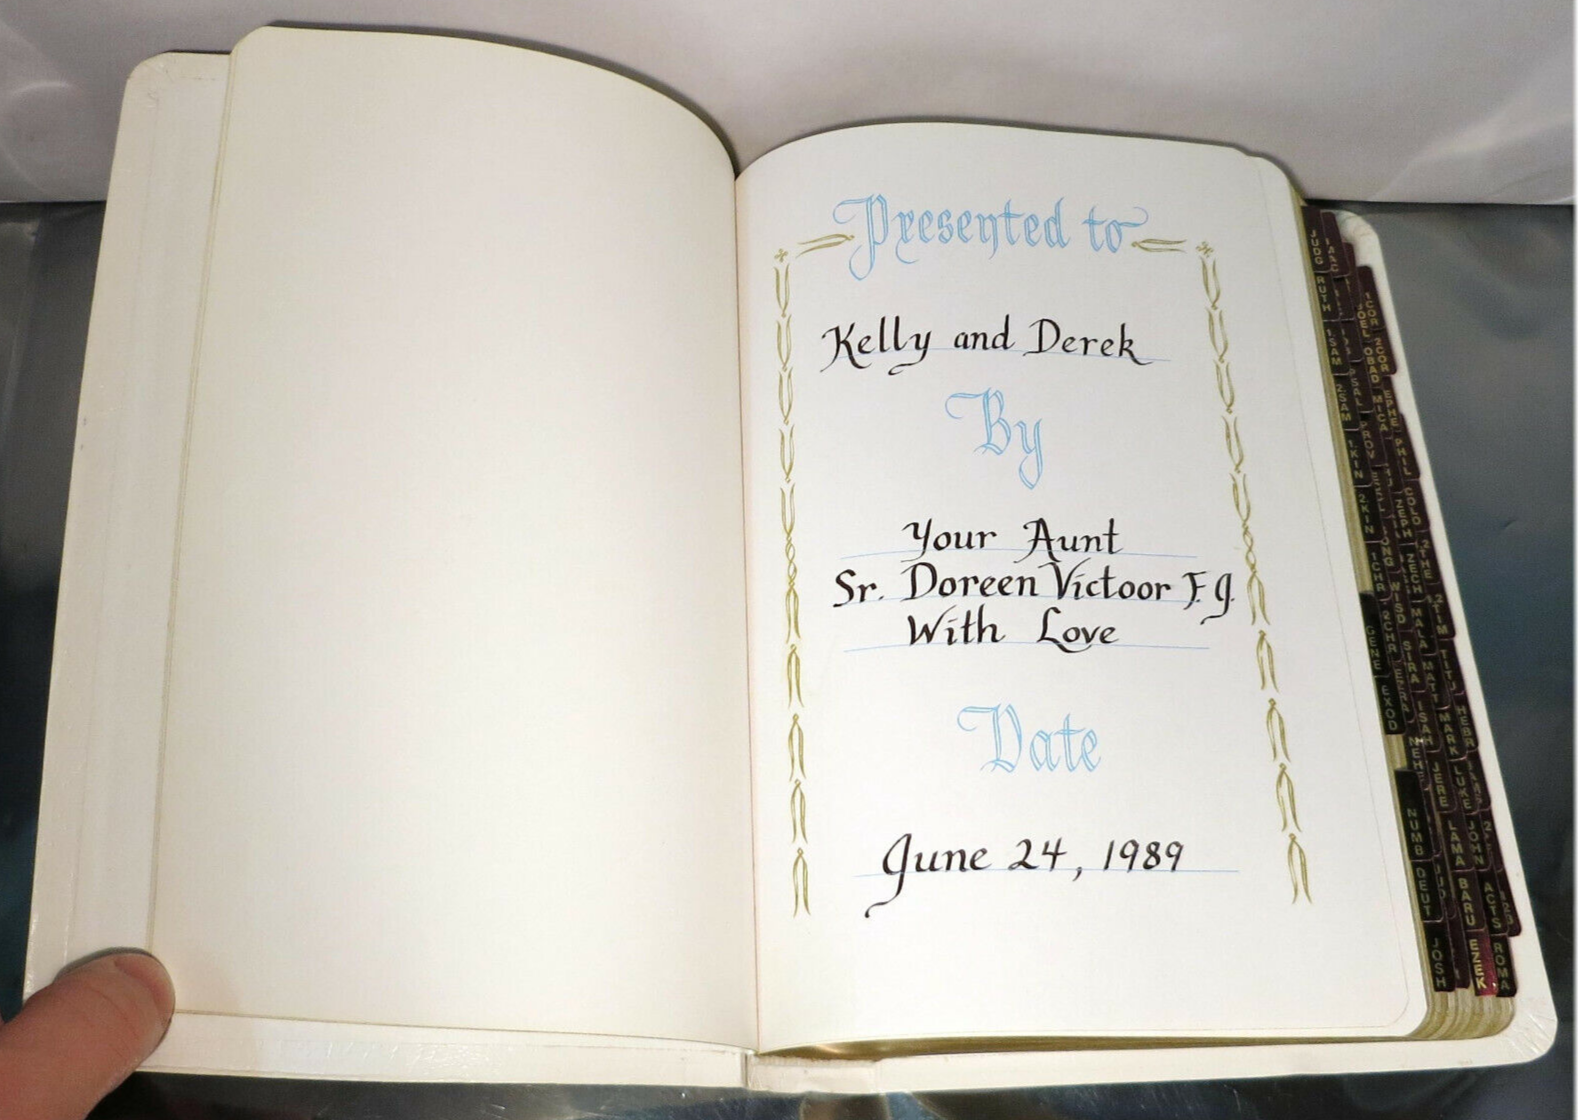 Presented to
Kelly and Derek
By
Your Aunt
Sr. Doreen Victoor F.J.
With Love
Date
June 24, 1989
JUDG
RUTH
1SAM
2SAM
1KIN
2KIN
1CHR
2CHR
EZRA
NEHE
GENE
EXOD
NUMB
DEUT
JOSH
PSAL
PROV
WISD
SIRA
ISAH
JERE
LAMA
BARU
EZEK
JOEL
OBAD
MICA
ZEPH
ZECH
MALA
MATT
MARK
LUKE
JOHN
ACTS
ROMA
1COR
2COR
EPHE
PHIL
COLO
2THE
TITU
HEBR